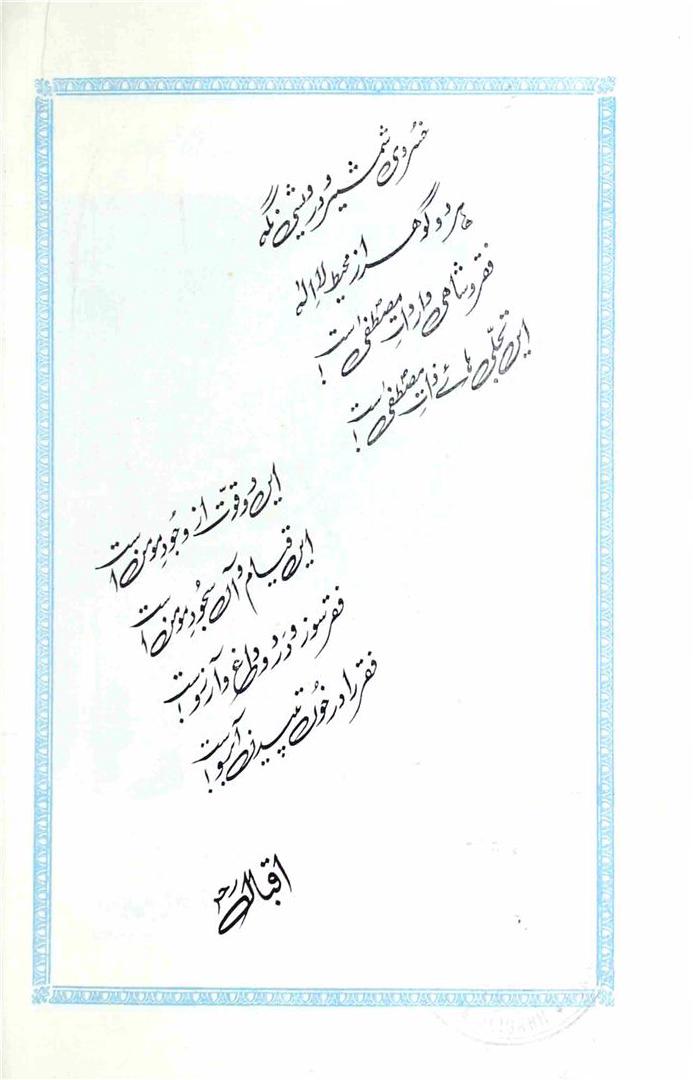 خسروی شمشیر و درویشی نگہ
ہر دو گوہر از محیطِ لا اِلٰہ
فقر و شاہی وارداتِ مصطفیٰؐ است!
ایں تجلّی ہائے ذاتِ مصطفیٰؐ است!
ایں دو قوّت از وجودِ مومن است
ایں قیام و آں سجودِ مومن است
فقر سوز و درد و داغ و آرزوست!
فقر را در خوں تپیدن آبروست!
اقبالؒ